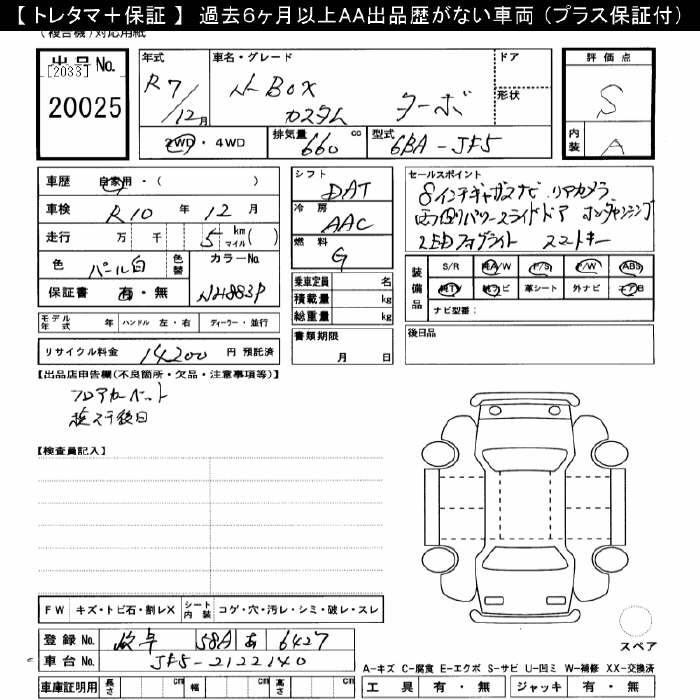 【 トレタマ＋保証 】 過去6ヶ月以上AA出品歴がない車両 (プラス保証付)
(複合機)対応用紙
出品No.
[2033]
20025
年式
R7/12月
車名・グレード
N BOX
カスタム ターボ
ドア
形状
評価点
S
内装
A
2WD・4WD
排気量 660 cc
型式 6BA-JF5
車歴 自家用・( )
車検 R10 年 12 月
走行 万 千 5 km マイル ( )
色 パール白 色替
カラーNo.
保証書 有・無 NH883P
モデル年式 年 ハンドル 左・右 ディーラー・並行
リサイクル料金 14200 円 預託済
シフト DAT
冷房 AAC
燃料 G
乗車定員 名
積載量 kg
総重量 kg
書類期限
月 日
セールスポイント
8インチギャザズナビ リアカメラ
両側パワースライドドア ホンダセンシング
LEDフォグライト スマートキー
装備品
S/R AAW P/S P/W ABS
純TV 純ナビ 革シート 外ナビ エアB
ナビ型番：
後日品
【出品店申告欄(不良箇所・欠品・注意事項等)】
フロアカーペット
後日
【検査員記入】
FW キズ・トビ石・割レX シート内装 コゲ・穴・汚レ・シミ・破レ・スレ
登録No. 岐阜 58A あ 6427
車台No. JF5-2122140
車庫証明用 長さ cm 幅 cm 高さ cm
スペア
A-キズ C-腐食 E-エクボ S-サビ U-凹ミ W-補修 XX-交換済
工具 有・無 ジャッキ 有・無